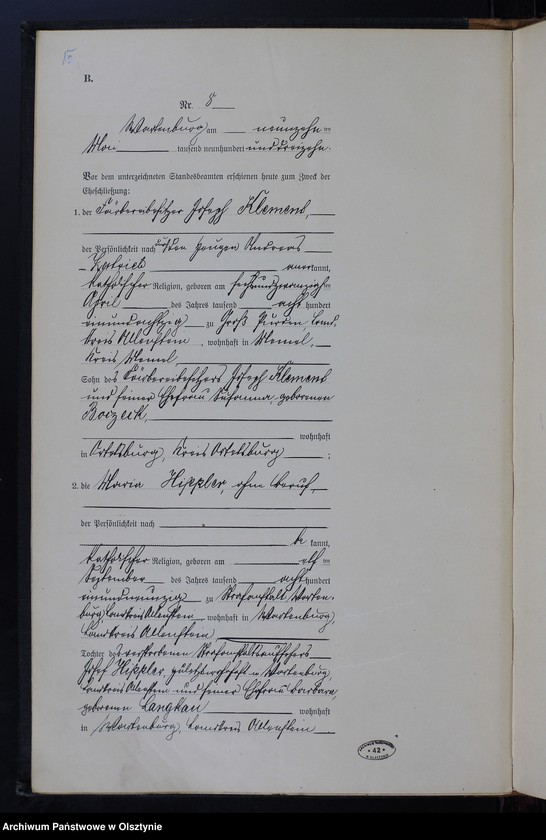 15
B.
Nr. 8
Wartenburg am neunzehnten
Mai tausend neunhundert und dreizehn.
Vor dem unterzeichneten Standesbeamten erschienen heute zum Zweck der
Eheschließung:
1. der Färbereibesitzer Joseph Klement,
der Persönlichkeit nach durch den Zeugen Andreas
anerkannt,
katholischer Religion, geboren am sechsundzwanzigsten
April des Jahres tausend acht hundert
einundachtzig zu Groß Purden, Land-
kreis Allenstein, wohnhaft in Memel,
Kreis Memel
Sohn des Färbereibesitzers Joseph Klement
und seiner Ehefrau Susanna, geborenen
wohnhaft
in Ortelsburg, Kreis Ortelsburg;
2. die Maria Hippler, ohne Beruf,
der Persönlichkeit nach
be kannt,
katholischer Religion, geboren am elften
September des Jahres tausend acht hundert
einundneunzig zu Strafanstalt Warten-
burg, Landkreis Allenstein wohnhaft in Wartenburg,
Landkreis Allenstein
Tochter des verstorbenen Strafanstaltsaufsehers
Josef Hippler, zuletzt wohnhaft in Wartenburg,
Landkreis Allenstein und seiner Ehefrau Barbara
geborenen Langkau wohnhaft
in Wartenburg, Landkreis Allenstein
* 42 *
Archiwum Państwowe w Olsztynie